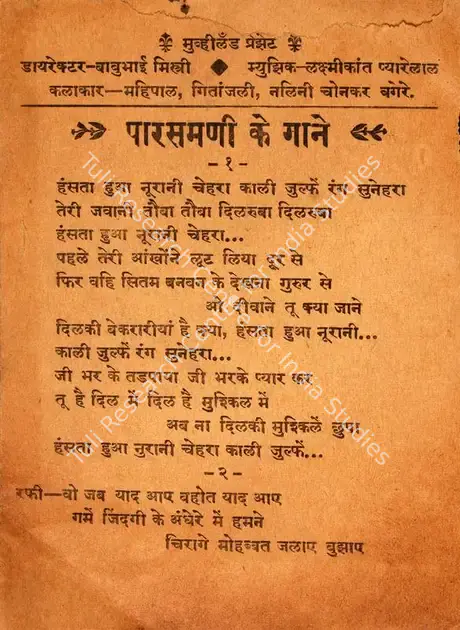 मुव्हीलँड प्रेझेट
डायरेक्टर-बाबुभाई मिस्त्री ◆ म्युझिक-लक्ष्मीकांत प्यारेलाल
कलाकार—महिपाल, गितांजली, नलिनी चोनकर वगेरे.
पारसमणी के गाने
-१-
हंसता हुआ नूरानी चेहरा काली जुल्फें रंग सुनेहरा
तेरी जवानी तौबा तौबा दिलरुबा दिलरुबा
हंसता हुआ नूरानी चेहरा...
पहले तेरी आंखोंने लूट लिया दूर से
फिर वहि सितम बनवन के देखना गुरुर से
ओ दीवाने तू क्या जाने
दिलकी बेकरारीयां है क्या, हंसता हुआ नूरानी...
काली जुल्फें रंग सुनेहरा...
जी भर के तडपाया जी भरके प्यार कर
तू है दिल में दिल है मुश्किल में
अब ना दिलकी मुश्किलें छुपा
हंसता हुआ नुरानी चेहरा काली जुल्फें...
-२-
रफी—वो जब याद आए बहोत याद आए
गमें जिंदगी के अंधेरे में हमने
चिरागे मोहब्बत जलाए बुझाए
Tuli Research Centre for India Studies
Tuli Research Centre for India Studies